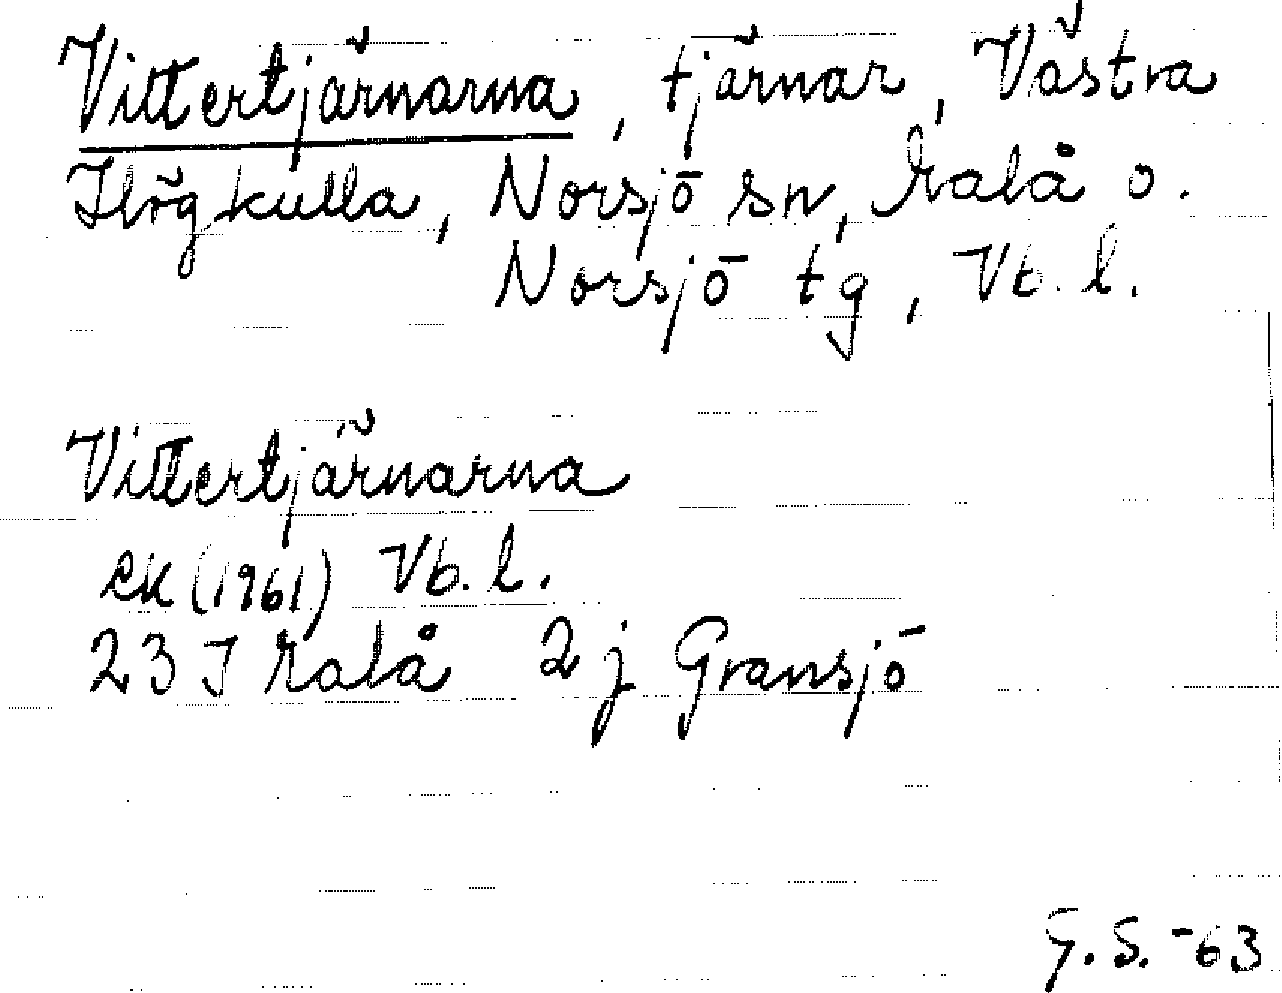 Vittertjärnarna, tjärnar, Västra
Högkulla, Norsjö sn, Malå o.
Norsjö tg, Vb. l.
Vittertjärnarna
ek (1961) Vb. l.
23 I Malå 2 j Gransjö
G. S. -63